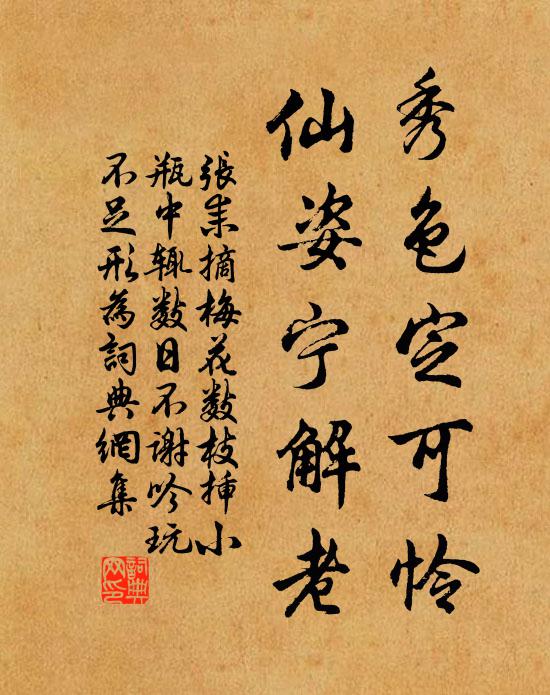 秀色定可怜
仙姿宁解老
張耒摘梅花数枝揷小
瓶中輙数日不謝吟玩
不足形為詞典網集
詞典网印